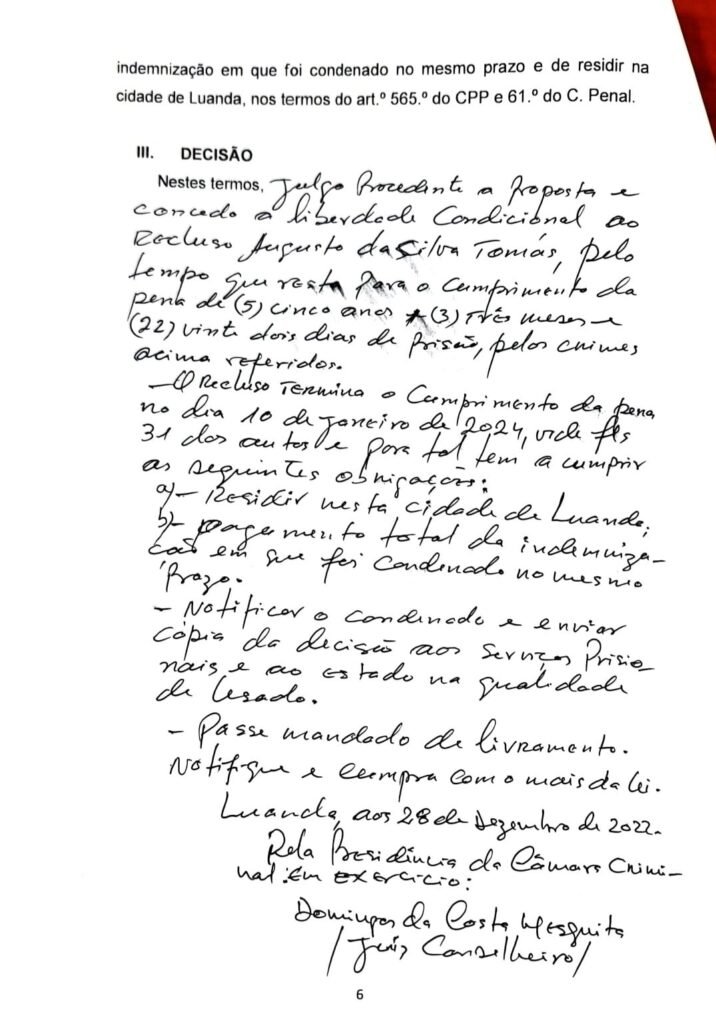 indemnização em que foi condenado no mesmo prazo e de residir na
cidade de Luanda, nos termos do art.º 565.º do CPP e 61.º do C. Penal.
III. DECISÃO
Nestes termos, Julgo Procedente a Proposta e
concedo a liberdade Condicional ao
Recluso Augusto da Silva Tomás, pelo
tempo que resta Para o Cumprimento da
pena de (5) cinco anos (3) Três meses e
(22) vinte dois dias de Prisão, pelos crimes
acima referidos.
- O Recluso Termina o Cumprimento da pena
no dia 10 de janeiro de 2024, vide fls
31 dos autos e para tal tem a cumprir
as seguintes obrigações:
a)- Residir nesta cidade de Luanda;
b)- pagamento total da indemniza-
ção em que foi Condenado no mesmo
Prazo.
- Notificar o condenado e enviar
cópia da decisão aos Serviços Prisio-
nais e ao estado na qualidade
de lesado.
- Passe mandado de livramento.
Notifique e Cumpra com o mais da lei.
Luanda, aos 28 de Dezembro de 2022.
Pela Presidência da Câmara Crimi-
nal em exercício:
Domingos da Costa Mesquita
/Juiz Conselheiro/
6